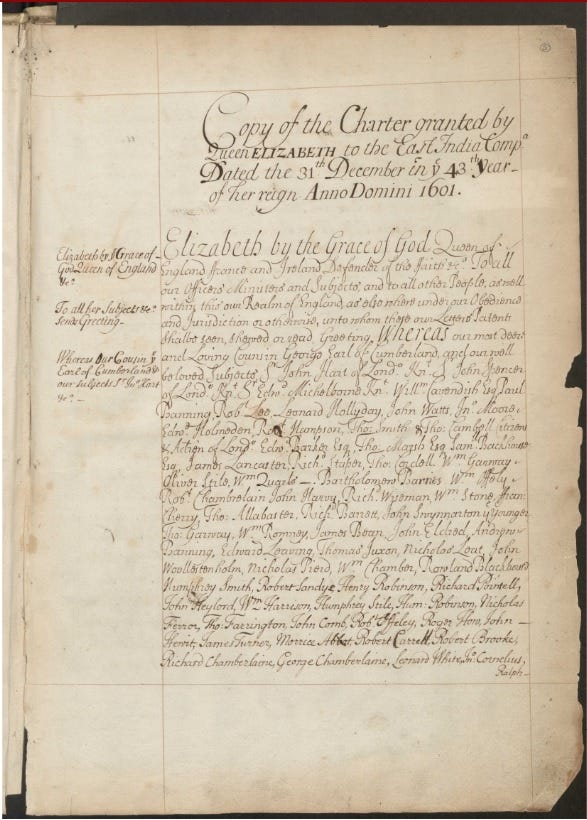 Copy of the Charter granted by
Queen ELIZABETH to the East India Compª
Dated the 31th December in yᵉ 43th Year
of her reign Anno Domini 1601.
Elizabeth by yᵉ Grace of
God Queen of England
&cª
To all her Subjects &cª
Sends Greeting
Whereas our Cousin yᵉ
Earl of Cumberland &
our subjects Sʳ Jnº Hart
&cª
Elizabeth by the Grace of God Queen of
England France and Ireland Defender of the Faith &cª To all
our Officers Ministers and Subjects, and to all other People, as well
within this our Realm of England, as else where under our Obedience
and Jurisdiction or otherwise, unto whom these our Letters Patent
shall be seen, shewed or read Greeting. Whereas our most deere
and Loving Cousin George Earl of Cumberland, and our well
beloved Subjects Sʳ John Hart of Londº Knᵗ Sʳ John Spencer
of Londº Knᵗ Sʳ Edwᵈ Michelbourne Knᵗ Willᵐ Cavendish Esq Paul
Banning Robᵗ Lee, Leonard Hollyday, John Watts, Jnº Moore,
Edwᵈ Holmeden, Robᵗ Hampson, Thoˢ Smith & Thoˢ Cambell Citizens
& of Londº Edwᵈ Barker Esq, Thoˢ Marsh Esq Samˡ Backhouse
Esq, James Lancaster, Richᵈ Staper, Thoˢ Cordell, Wᵐ Garrway
Oliver Stile, Wᵐ Quarles Bartholomew Barnes Wᵐ Offely
Robᵗ Chamberlain John Harvy, Rich. Wiseman, Wᵐ Stone Fran:
Cherry, Tho: Allabaster, Richᵈ Barrett, John Swynnerton yᵉ younger
Tho: Garway, Wᵐ Romney, James Bean, John Eldred, Andrew
Banning, Edward Leaving, Thomas Juxon, Nicholas Leat, John
Woollestenholm, Nicholas Pierd, Wᵐ Chamber, Rowland Blackhouse
Humphrey Smith, Robert Sandye Henry Robinson, Richard Pointell,
John Heylord, Wᵐ Harrison, Humphry Stile, Hum: Robinson, Nicholas
Ferror, Tho: Farrington, John Comb, Robᵗ Offeley, Roger How, John
James Turner, Morrice Abbot Robert Carrell, Robert Brooke,
Richard Chamberlaine, George Chamberlaine, Leonard White, Jº: Cornelius,
Ralph